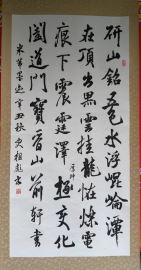 研山銘五色水浮崐崘潭
在頂出黑雲挂龍怪爍電
痕下震霆澤極變化
厚坤
闔道門寶晉山前軒書
米芾墨迹辛丑秋